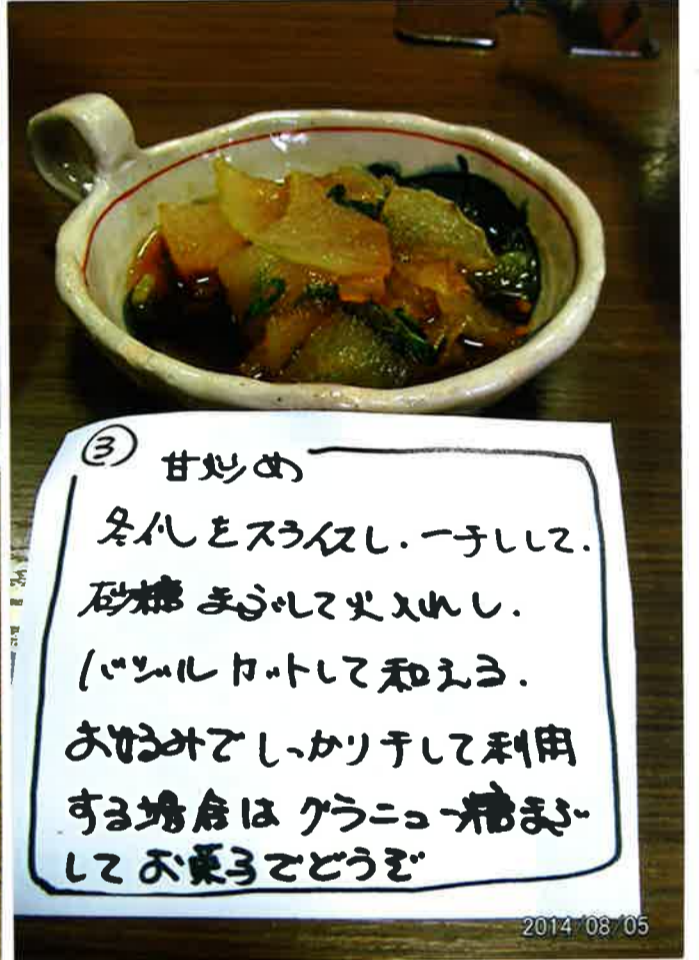 ③ 甘炒め
冬瓜をスライスし、一干しして、
砂糖まぶして火入れし、
バジルカットして和える.
お好みでしっかり干して利用
する場合は グラニュー糖まぶ
して お菓子でどうぞ
2014/08/05